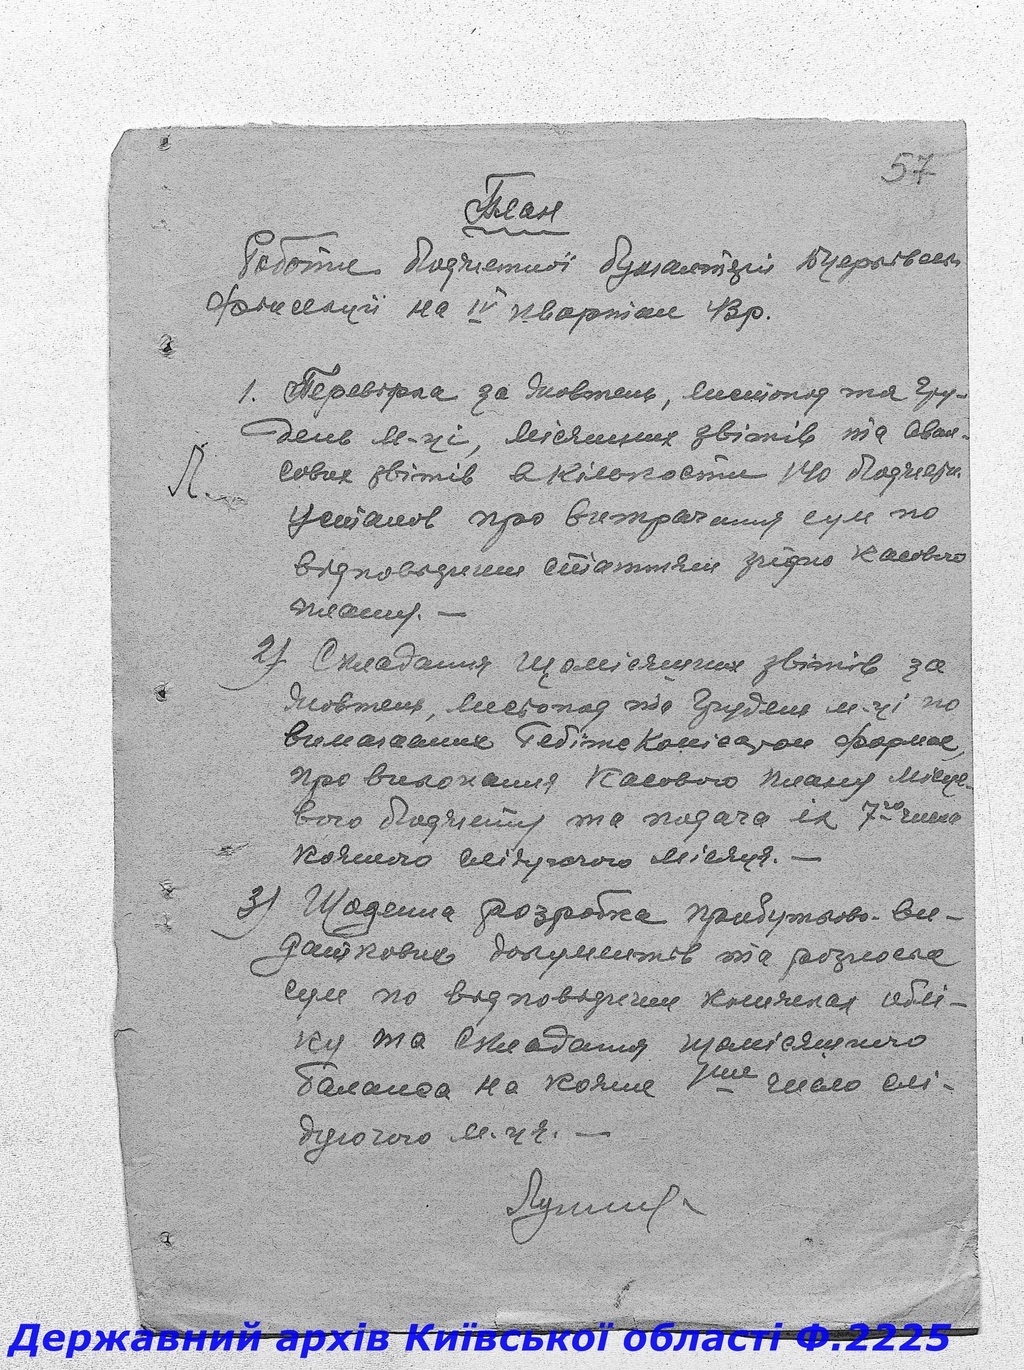 57
План
Роботи Бюджетної Бухгалтерії
на IV квартал 43р.
1. Перевірка за жовтень, листопад та Гру-
день м-ці, місячних звітів та аван-
сових звітів в кількости 140 бюджетн.
Установ про витрачання сум по
відповідним статтям згідно касового
плану. —
2) Складання щомісячних звітів за
жовтень, листопад та Грудень м-ці по
вимаганих Гебітскомісаром формах,
про виконання касового плану місце-
вого бюджету та подача їх 7го числа
кожного слідуючого місяця. —
3) Щоденна розробка прибутково-ви-
даткових документів та розноска
сум по відповідним книжках облі-
ку та складання щомісячного
баланса на кожне 1ше число слі-
дуючого м-ця. —
Державний архів Київської області Ф.2225